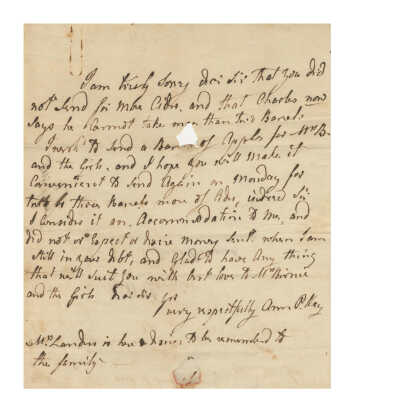 I am truly sorry dear Sir That you did
not Send for more Cider, and that Charles now
Says he Cannot take more than Six Barrels
I wish to Send a Barrel of Apples for Mrs B
and the Girls, and I hope you will make it
Convenient to Send Again on Monday for
two or three barrels more of Cider, indeed Sir
I Consider it an Accommodation to me, and
did not Expect or desire money Sent when I am
Still in your debt, and Glad to have Any thing
that will Suit you with best love to Mrs
and the Girls dear Sir yrs
very respectfully Ann
Mrs Landon is here desires to be remembered to
the family